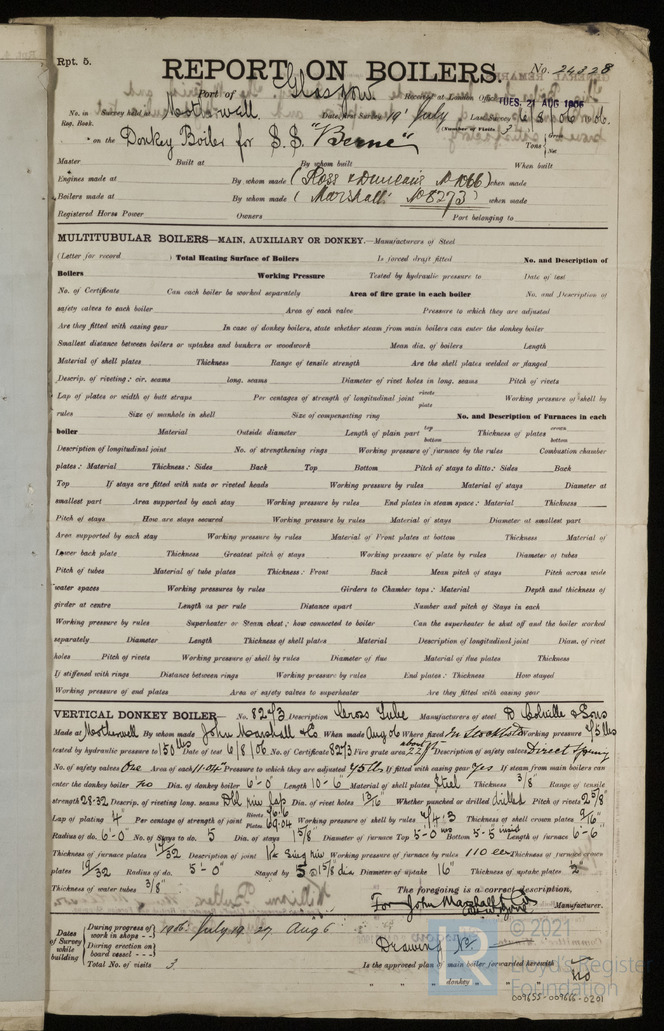 Rpt. 5.
REPORT ON BOILERS.
No. 24328
Port of Glasgow
Received at London Office TUES. 21 AUG 1906
No. in Reg. Book.
Survey held at Motherwell
Date, first Survey 19th July
Last Survey 6. 8. 06
(Number of Visits 3)
on the Donkey Boiler for S.S. "Berne"
Tons { Gross Net
Master Built at By whom built When built
Engines made at By whom made (Ross & Duncan's No 1066) when made
Boilers made at By whom made (Marshall: No 8273) when made
Registered Horse Power Owners Port belonging to
MULTITUBULAR BOILERS—MAIN, AUXILIARY OR DONKEY.—Manufacturers of Steel
(Letter for record ) Total Heating Surface of Boilers Is forced draft fitted No. and Description of
Boilers Working Pressure Tested by hydraulic pressure to Date of test
No. of Certificate Can each boiler be worked separately Area of fire grate in each boiler No. and Description of
safety valves to each boiler Area of each valve Pressure to which they are adjusted
Are they fitted with easing gear In case of donkey boilers, state whether steam from main boilers can enter the donkey boiler
Smallest distance between boilers or uptakes and bunkers or woodwork Mean dia. of boilers Length
Material of shell plates Thickness Range of tensile strength Are the shell plates welded or flanged
Descrip. of riveting: cir. seams long. seams Diameter of rivet holes in long. seams Pitch of rivets
Lap of plates or width of butt straps Per centages of strength of longitudinal joint rivets plate Working pressure of shell by
rules Size of manhole in shell Size of compensating ring No. and Description of Furnaces in each
boiler Material Outside diameter Length of plain part top bottom Thickness of plates crown bottom
Description of longitudinal joint No. of strengthening rings Working pressure of furnace by the rules Combustion chamber
plates: Material Thickness: Sides Back Top Bottom Pitch of stays to ditto: Sides Back
Top If stays are fitted with nuts or riveted heads Working pressure by rules Material of stays Diameter at
smallest part Area supported by each stay Working pressure by rules End plates in steam space: Material Thickness
Pitch of stays How are stays secured Working pressure by rules Material of stays Diameter at smallest part
Area supported by each stay Working pressure by rules Material of Front plates at bottom Thickness Material of
Lower back plate Thickness Greatest pitch of stays Working pressure of plate by rules Diameter of tubes
Pitch of tubes Material of tube plates Thickness: Front Back Mean pitch of stays Pitch across wide
water spaces Working pressures by rules Girders to Chamber tops: Material Depth and thickness of
girder at centre Length as per rule Distance apart Number and pitch of Stays in each
Working pressure by rules Superheater or Steam chest; how connected to boiler Can the superheater be shut off and the boiler worked
separately Diameter Length Thickness of shell plates Material Description of longitudinal joint Diam. of rivet
holes Pitch of rivets Working pressure of shell by rules Diameter of flue Material of flue plates Thickness
If stiffened with rings Distance between rings Working pressure by rules End plates: Thickness How stayed
Working pressure of end plates Area of safety valves to superheater Are they fitted with easing gear
VERTICAL DONKEY BOILER— No. 8273 Description Cross Tube Manufacturers of steel D Colville & Sons
Made at Motherwell By whom made John Marshall & Co When made Aug 06 Where fixed In Stokehold Working pressure 75 lbs
tested by hydraulic pressure to 150 lbs Date of test 6/8/06 No. of Certificate 8273 Fire grate area about 22 Description of safety valves Direct Spring
No. of safety valves One Area of each 11.04" Pressure to which they are adjusted 75 lbs If fitted with easing gear Yes If steam from main boilers can
enter the donkey boiler No Dia. of donkey boiler 6'-0" Length 10-6" Material of shell plates Steel Thickness 3/8" Range of tensile
strength 28-32 Descrip. of riveting long. seams Dbl riv lap Dia. of rivet holes 13/16 Whether punched or drilled drilled Pitch of rivets 2 5/8"
Lap of plating 4" Per centage of strength of joint Rivets Plates 69.04 Working pressure of shell by rules Thickness of shell crown plates 9/16"
Radius of do. 6'-0" No. of Stays to do. 5 Dia. of stays 1 5/8" Diameter of furnace Top 5-0" Bottom 5-5" Length of furnace 6'-6"
Thickness of furnace plates 17/32 Description of joint Working pressure of furnace by rules 110 Thickness of furnace crown
plates 19/32 Radius of do. 5'-0" Stayed by 5 of 1 5/8 dia Diameter of uptake 16" Thickness of uptake plates
Thickness of water tubes 3/8"
The foregoing is a correct description,
For John Marshall & Co Manufacturer.
Dates of Survey while building
During progress of work in shops - - 1906 July 19. 27 Aug 6
During erection on board vessel - - -
Total No. of visits 3
Drawing No.
Is the approved plan of main boiler forwarded herewith
" " " donkey " " " No
© 2021
LR
Lloyd's Register
Foundation
009655-009666-0201